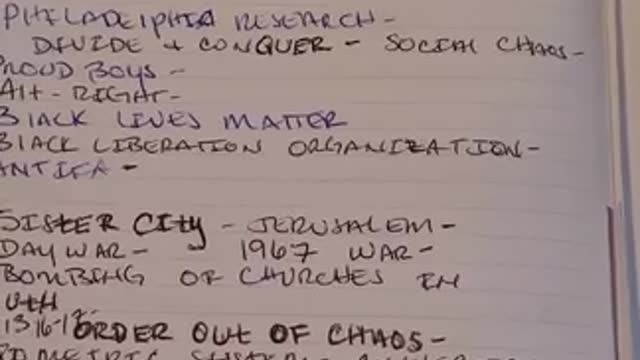 PHILADELPHIA RESEARCH -
DIVIDE + CONQUER - SOCIAL CHAOS -
PROUD BOYS -
Alt-RIGHT-
BLACK LIVES MATTER
BLACK LIBERATION ORGANIZATION -
ANTIFA -
SISTER CITY - JERUSALEM -
DAY WAR - 1967 WAR -
BOMBING OF CHURCHES IN
ORDER OUT OF CHAOS -